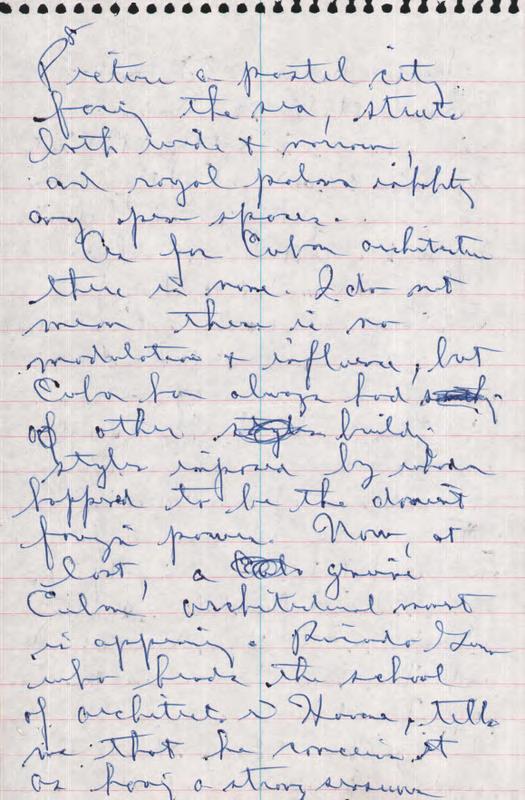 Picture a pastel city
facing the sea, streets
both wide & narrow,
and royal palms
any open spaces.
As for Cuban architecture
there is none. I do not
mean there is no
modulation & influence, but
Cuba has always had
of other building
styles imposed by whom
happened to be the dominant
foreign power. Now, at
last, a genuine
Cuban architectural
is appearing. Ricardo
who heads the school
of architects in Havana, tells
me that he conceives it
as having a strong